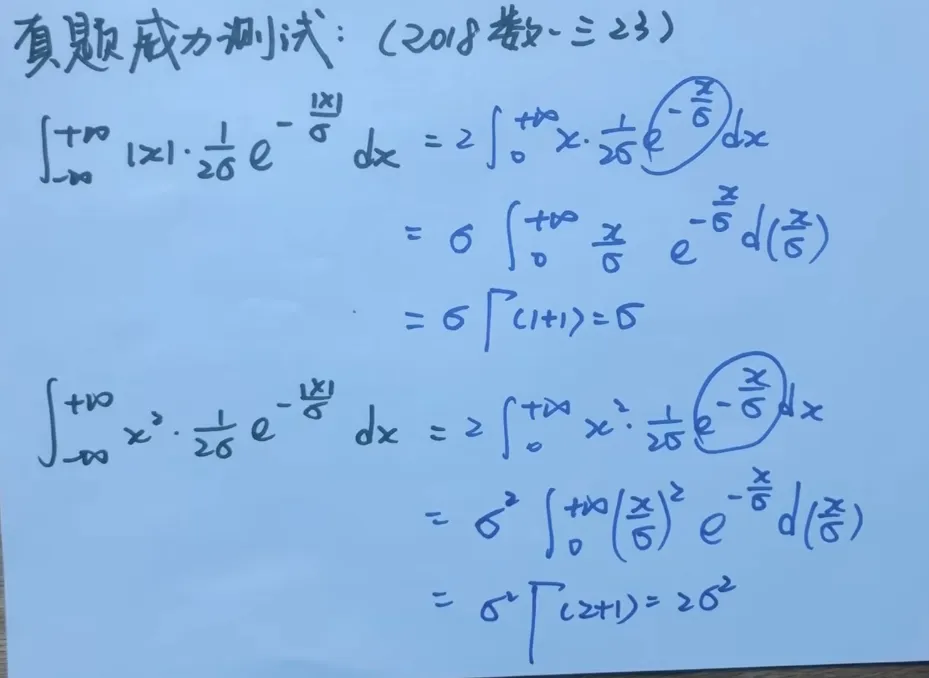 真题威力测试：（2018数一三23）
∫_{-∞}^{+∞} |x|·\frac{1}{2σ} e^{-\frac{|x|}{σ}} dx = 2∫_{0}^{+∞} x·\frac{1}{2σ} e^{-\frac{x}{σ}} dx
= σ ∫_{0}^{+∞} \frac{x}{σ} e^{-\frac{x}{σ}} d(\frac{x}{σ})
= σ Γ(1+1) = σ
∫_{-∞}^{+∞} x²·\frac{1}{2σ} e^{-\frac{|x|}{σ}} dx = 2∫_{0}^{+∞} x²·\frac{1}{2σ} e^{-\frac{x}{σ}} dx
= σ² ∫_{0}^{+∞} (\frac{x}{σ})² e^{-\frac{x}{σ}} d(\frac{x}{σ})
= σ² Γ(2+1) = 2σ²